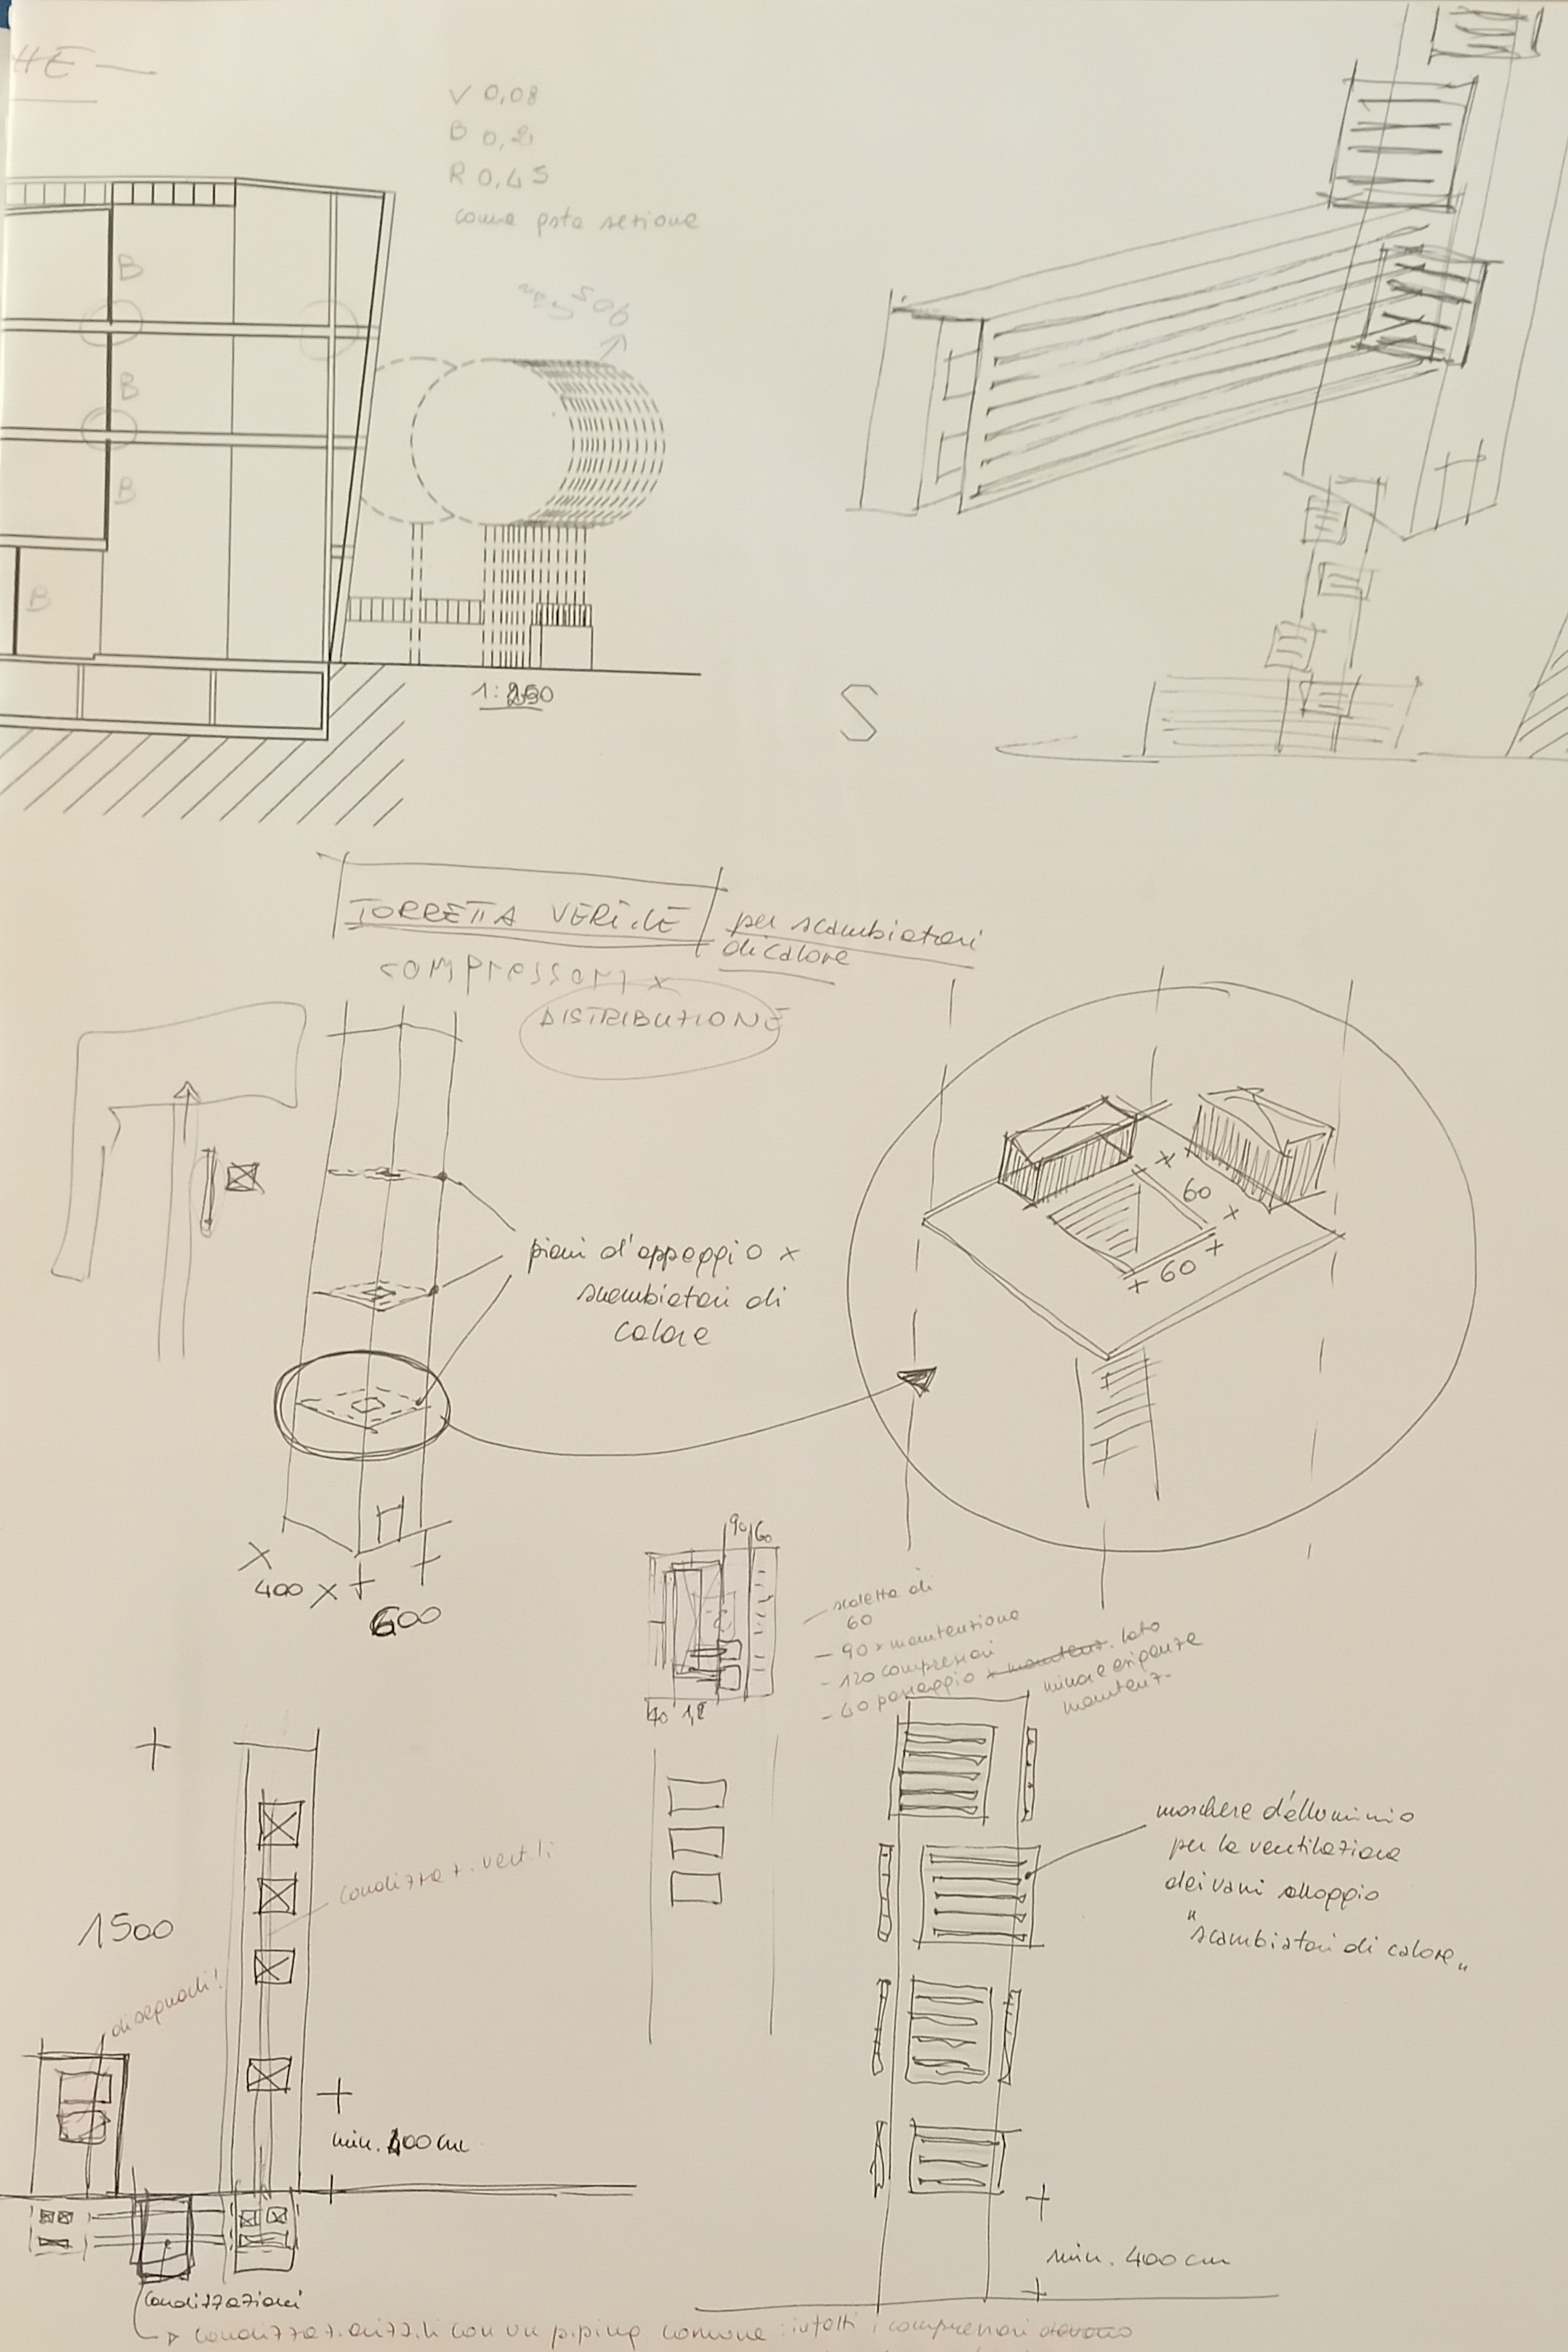 HE —
V 0,08
B 0,21
R 0,45
come qsta sezione
B
B
B
B
1:250
S
TORRETTA VERT.LE
per scambiatori
di calore
compressori x
DISTRIBUZIONE
piani d'appoggio x
scambiatori di
calore
60
60
400
600
90 60
40 1,2
— scaletta di
60
— 90 x manutenzione
- 120 compressori
- 40 passaggio x manutenz. lato
minore esigenze
manutenz.
1500
condizzaz. vert.li
disegnarli!
min. 400 cm
maschere d'alluminio
per la ventilazione
dei vani alloggio
"scambiatori di calore"
min. 400 cm
condizzazioni
condizzaz. orizz.li con un piping comune: infatti i compressori